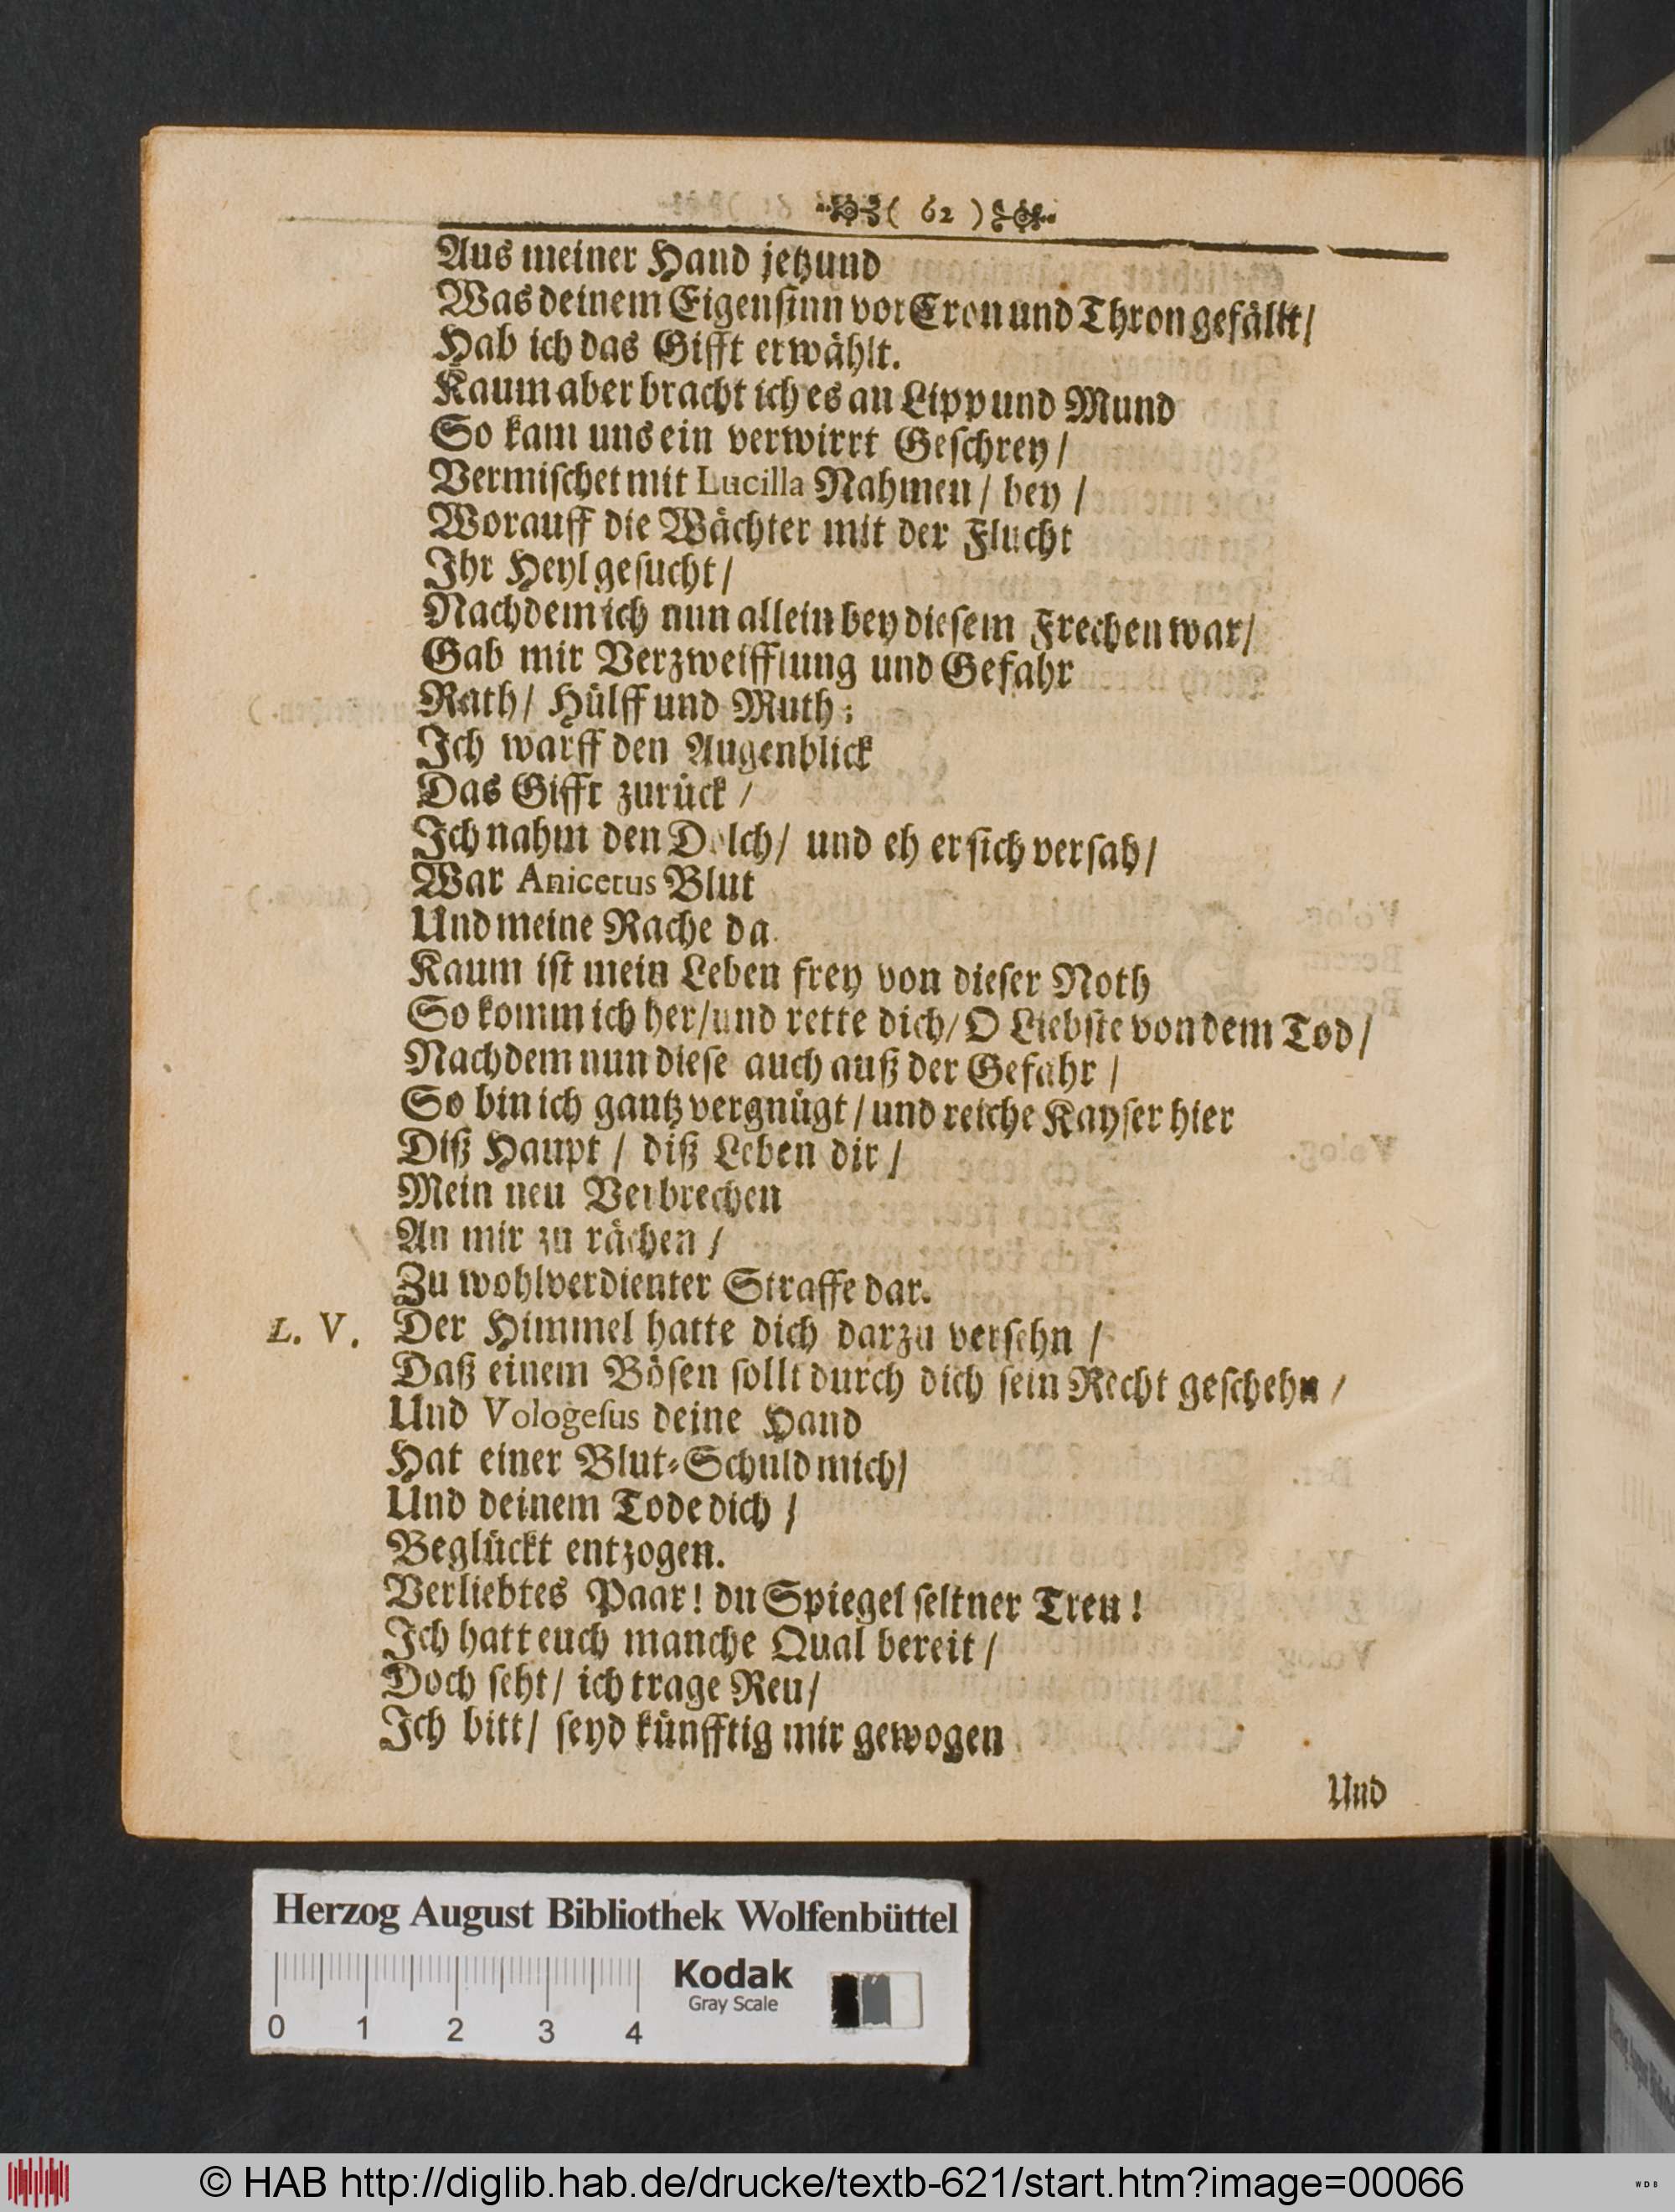 ( 62 )
Aus meiner Hand jetzund
Was deinem Eigensinn vor Cron und Thron gefällt/
Hab ich das Gifft erwählt.
Kaum aber bracht ich es an Lipp und Mund
So kam uns ein verwirrt Geschrey/
Vermischet mit Lucilla Nahmen/ bey/
Worauff die Wächter mit der Flucht
Ihr Heyl gesucht/
Nachdem ich nun allein bey diesem Frechen war/
Gab mir Verzweifflung und Gefahr
Rath/ Hülff und Muth:
Ich warff den Augenblick
Das Gifft zurück/
Ich nahm den Dolch/ und eh er sich versah/
War Anicetus Blut
Und meine Rache da
Kaum ist mein Leben frey von dieser Noth
So komm ich her/und rette dich/O Liebste von dem Tod/
Nachdem nun diese auch auß der Gefahr/
So bin ich gantz vergnügt/und reiche Kayser hier
Diß Haupt/ diß Leben dir/
Mein neu Verbrechen
An mir zu rächen/
Zu wohlverdienter Straffe dar.
L. V. Der Himmel hatte dich darzu versehn/
Daß einem Bösen sollt durch dich sein Recht geschehn/
Und Vologesus deine Hand
Hat einer Blut-Schuld mich/
Und deinem Tode dich/
Beglückt entzogen.
Verliebtes Paar! du Spiegel seltner Treu!
Ich hatt euch manche Qual bereit/
Doch seht/ ich trage Reu/
Ich bitt/ seyd künfftig mir gewogen
Und
Herzog August Bibliothek Wolfenbüttel
Kodak
Gray Scale
0 1 2 3 4
© HAB http://diglib.hab.de/drucke/textb-621/start.htm?image=00066
WDB